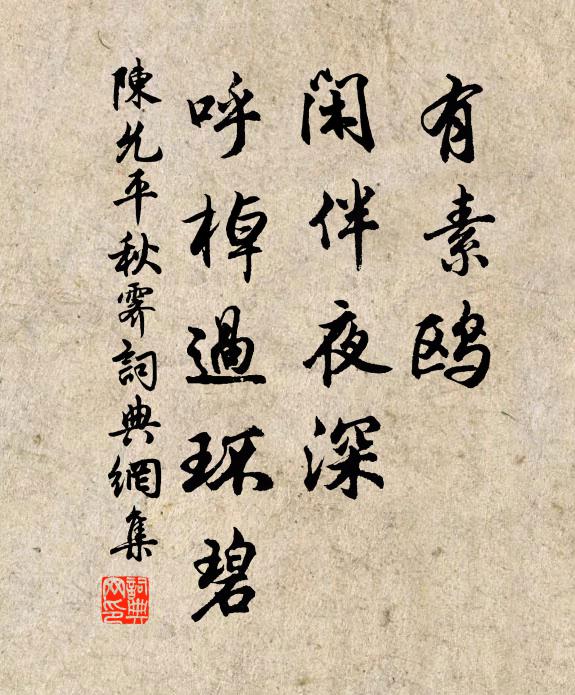 有素鸥
闲伴夜深
呼棹過环碧
陳允平秋霽詞典網集
詞典网印